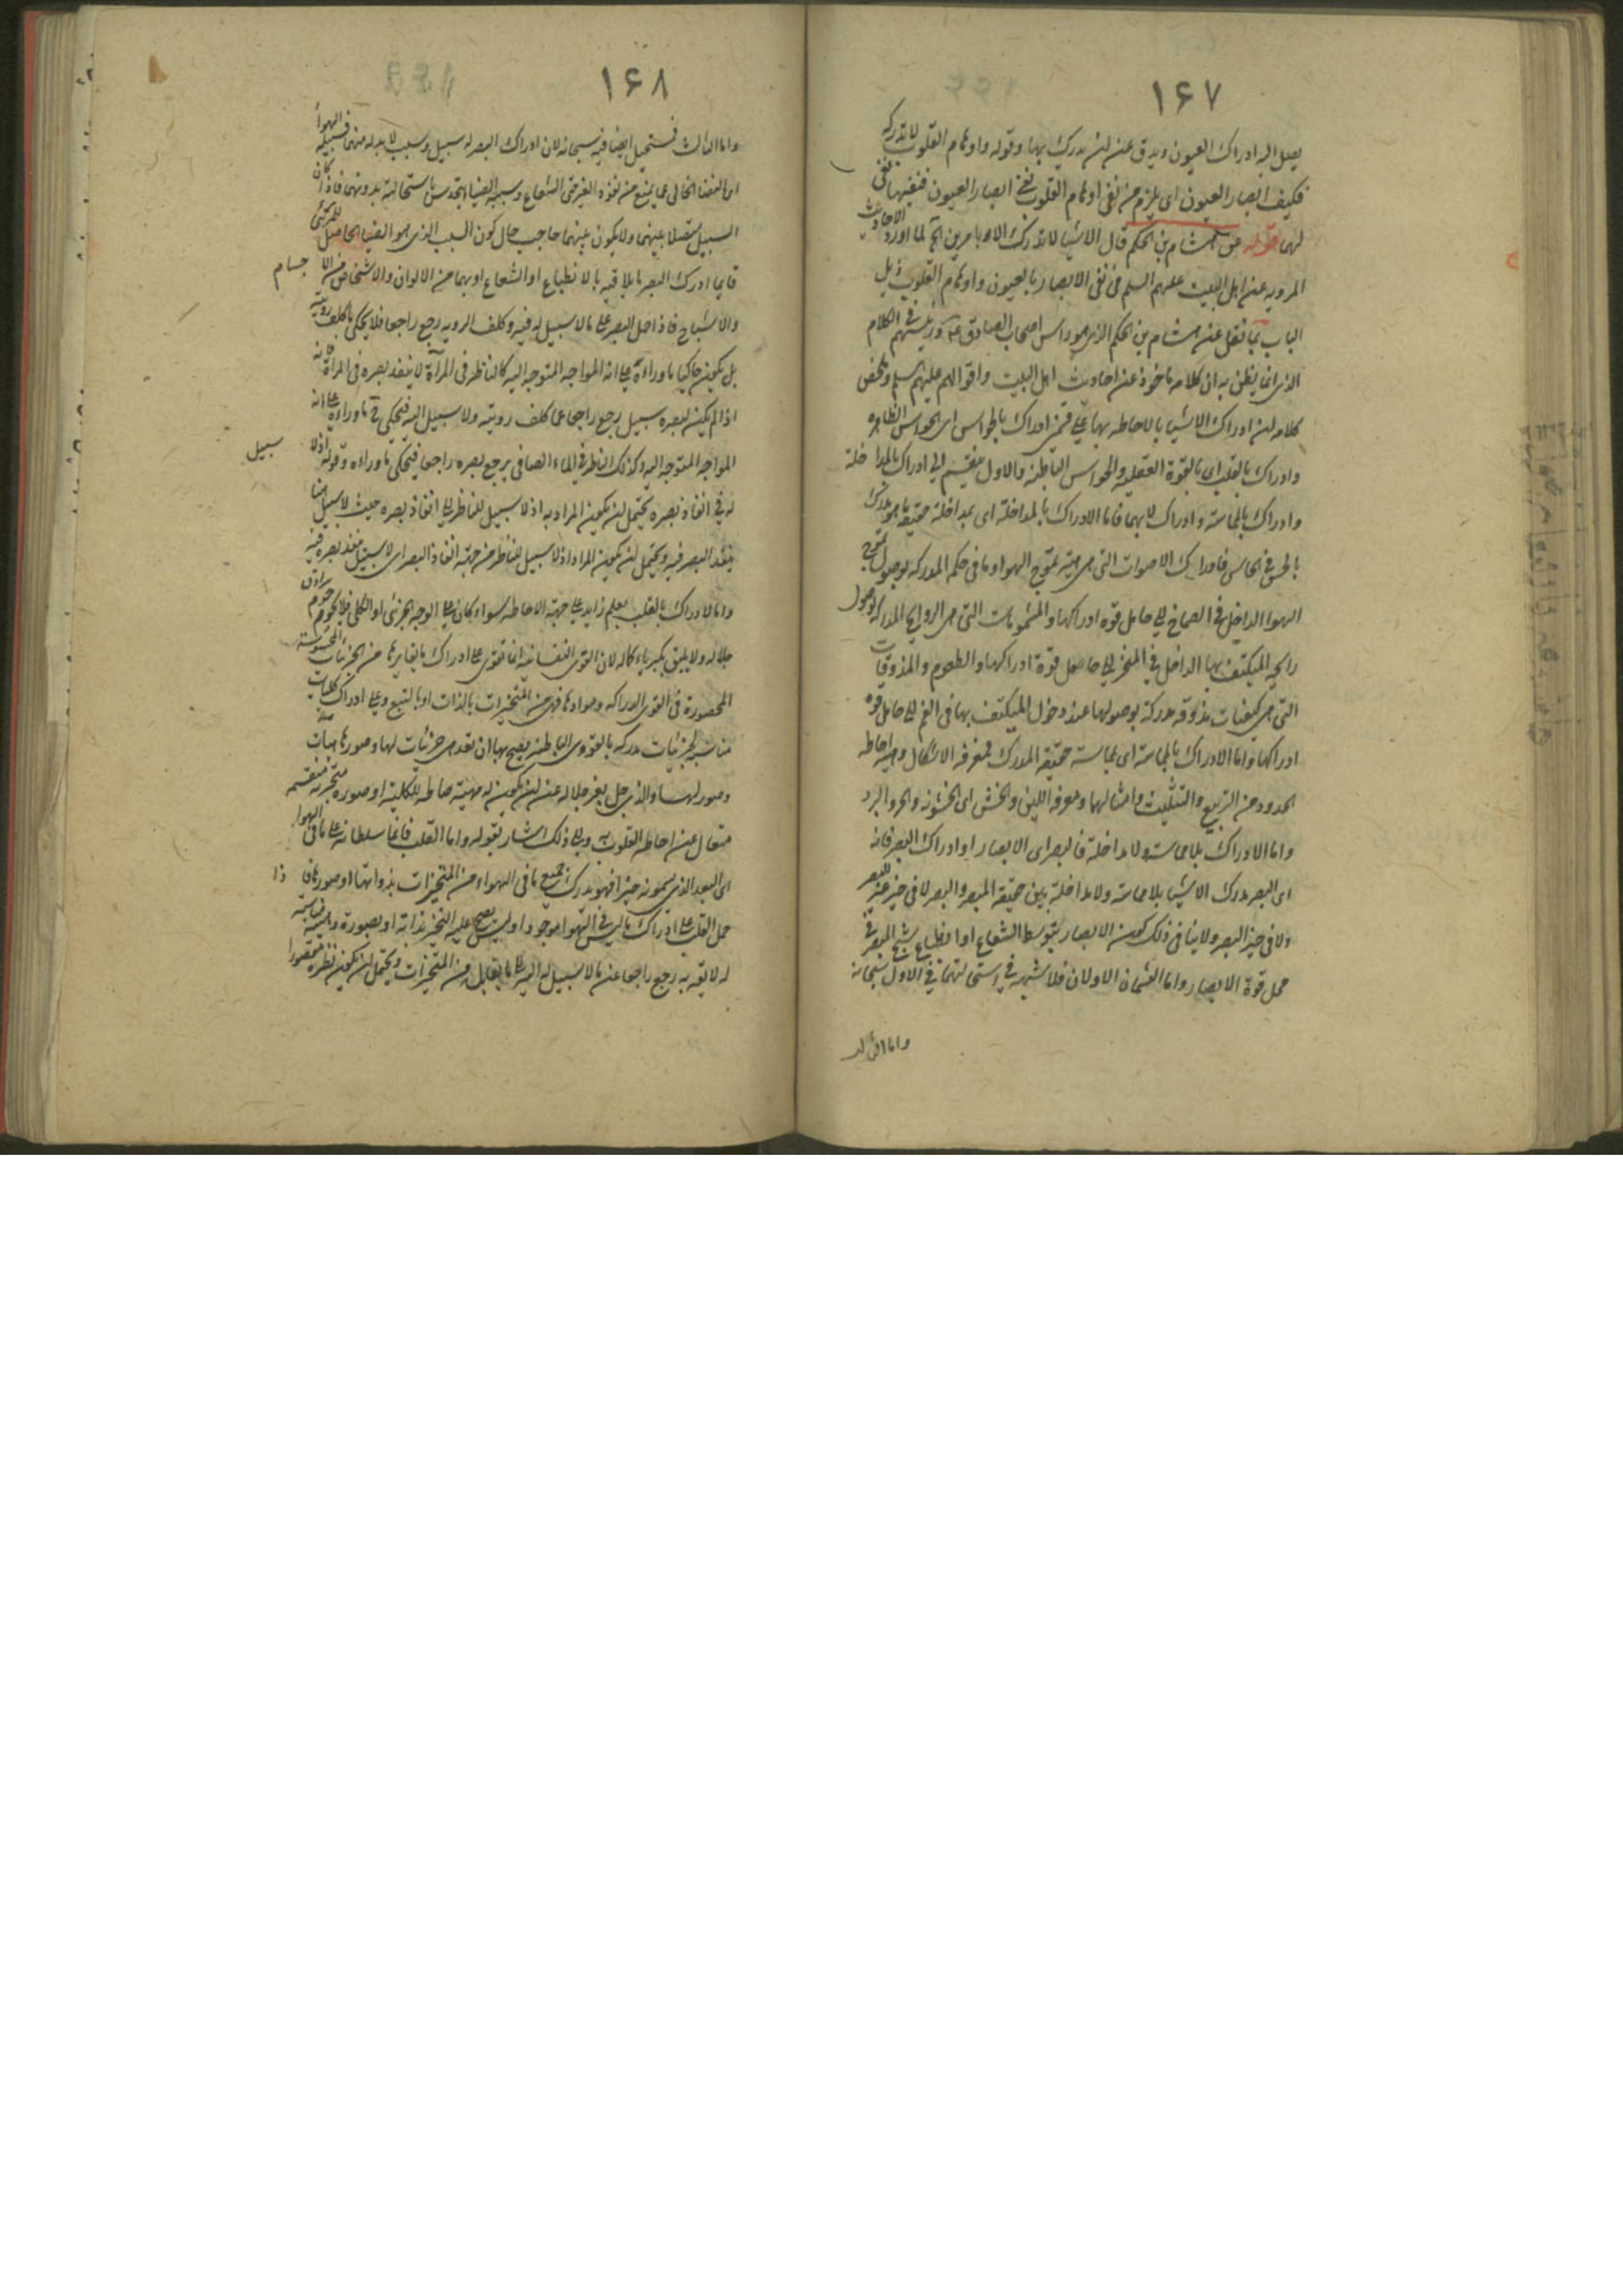 ١۶٧
يصل اليه ادراك العيون ويدق عن ان يدرك بها وقوله واوهام القلوب لا تدركه
فكيف ابصار العيون اى يلزم من نفى اوهام القلوب نفى ابصار العيون فنفيها نفى
لهما قوله عن هشام بن الحكم قال الاشيا لا تدرك الا بامرين الخ لما اورد الاحاديث
المرويه عن اهل البيت عليهم السلم فى نفى الابصار بالعيون واوهام القلوب ذيل
الباب بما نقل عن هشام بن الحكم الذى هو راس اصحاب الصادق ع ورئيسهم فى الكلام
الذى انما يظن به ان كلامه ماخوذ عن احاديث اهل البيت واقوالهم عليهم السلم وملخص
كلامه ان ادراك الاشيا بالاحاطه بها على قسمين ادراك بالحواس اى الحواس الظاهره
وادراك بالقلب اى بالقوة العقليه والحواس الباطنه والاول ينقسم الى ادراك بالمداخلة
وادراك بالمماسة وادراك لا بهما فاما الادراك بالمداخلة اى بمداخلة حقيقة ما هو مدرك
بالحس فى الحاس فادراك الاصوات التى هى هيئة تموج الهوا وما فى حكم المدركه بوصول تموج
الهوا الداخل فى الصماخ الى حامل قوه ادراكها والمشمومات التى هى الروايح المدركه بوصول
رايحه المتكيف بها الداخل فى المنخر الى حامل قوة ادراكها والطعوم والمذوقات
التى هى كيفيات مذوقه مدركة بوصولها عند دخول المتكيف بها فى الفم الى حامل قوه
ادراكها واما الادراك بالمماسة اى بمماسة حقيقة المدرك فمعرفه الاشكال وهيئه احاطه
الحدود من التربيع والتثليث وامثالهما ومعرفه اللين والخشن اى الخشونه والحر والبرد
واما الادراك بلا مماسة ولا مداخلة فالبصر اى الابصار او ادراك البصر فانه
اى البصر يدرك الاشيا بلا مماسة ولا مداخلة بين حقيقة المبصر والبصر لا فى حيز غير البصر
ولا فى حيز البصر ولا ينافى ذلك كون الابصار بتوسط الشعاع او انطباع شبح المبصر فى
محل قوة الابصار واما القسمان الاولان فلا شبهه فى استحالتهما فى الاول سبحانه
واما الثالث
١۶٨
واما الثالث فيستحيل ايضا فيه سبحانه لان ادراك البصر له سبيل وسبب لا بد له منهما فسبيله الهوأ
اى الفضا الخالى عما يمنع من نفوذ الشعاع وسببه الضيا لتحدس باستحالته بدونهما فاذا كان
السبيل متصلا بينهما ولا يكون بينهما حاجب حال كون السبب الذى هو الضيا الحاصل للمرئى
قايما ادرك البصر ما يلاقيه بالانطباع او الشعاع او بهما من الالوان والاشخاص من الاجسام
والاشباح فاذا حمل البصر على ما لا سبيل له فيه وكلف الرويه رجع راجعا فلا يحكى ما كلف رويته
بل يكون حاكيا ما وراءه على انه المواجه المتوجه اليه كالناظر فى المرآة لا ينفذ بصره فى المرآة فانه
اذا لم يكن لبصره سبيل يرجع راجعا عما كلف رويته ولا سبيل اليه فيحكى ما وراءه على انه
المواجه المتوجه اليه وكذلك الناظر فى الماء الصافى يرجع بصره راجعا فيحكى ما وراءه وقوله اذ لا سبيل
له فى انفاذ بصره يحتمل ان يكون المراد به اذ لا سبيل للناظر الى انفاذ بصره حيث لا سبيل هنا
ينفذ البصر فيه ويحتمل ان يكون المراد اذ لا سبيل للناظر من جهة انفاذ البصر اى لا سبيل ينفذ بصره فيه
واما الادراك بالقلب على جهة الاحاطه سواء كان على الوجه الجزئى او الكلى فلا يحوم حول سرادق
جلاله ولا يليق بكبرياء كماله لان القوى النفسانيه انما تقوى على ادراك ما يغايرها من الجزئيات المحسوسة
المحصورة فى القوى الدراكه وموادها فهى من المتحيزات بالذات او بالتبع وعلى ادراك كليات
مناسبه لجزئيات مدركه بالقوى الباطنه يصح بها ان تعد هى جزئيات لها وصورها
وصور لها والذى جل بعز جلاله عن ان يكون له مهية صالحه للكلية او صورة متجزيه منقسمه
متعال عن احاطه القلوب به والى ذلك اشار بقوله واما القلب فانما سلطانه على ما فى الهوا
اى البعد الذى يسمونه حيزا فهو يدرك جميع ما فى الهواء من المتحيزات بذواتها او صورها فاذا
حمل القلب على ادراك ما ليس فى الهوا موجودا وليس يصح عليه التحيز بذاته او بصورة مناسبة
له لايقه به رجع راجعا عن ما لا سبيل له اليه الى ما يقابله من المتحيزات ويحتمل ان يكون نظره مقصورا